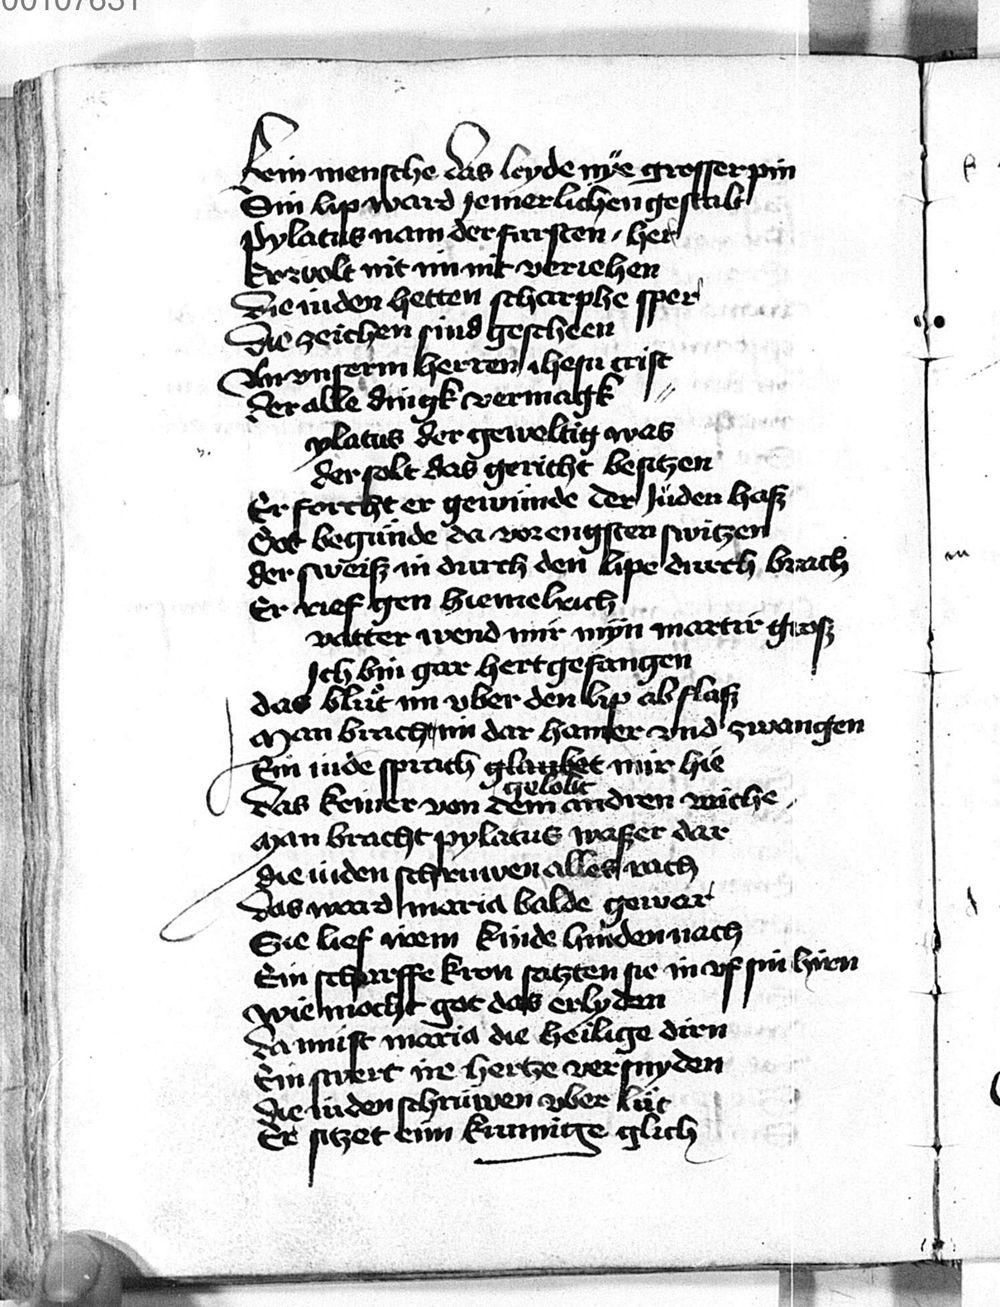 00107631
kein mensche das leyde nÿe grosser pin
Sin lip ward jemerlichen gestalt
Pylatus nam der fursten / her
Er wolt nit im nit veriehen
Die iuden hetten scharphe sper
Die zeichen sind gescheen
An vnserm herren ihesu crist
Der alle dingk vermagk //
ylatus der geweltig was
der solt das gericht besitzen
Er forcht er gewünde der Jüden hasz
Got begünde da vor engsten switzen
der sweisz in durch den lipe durch brach
Er rief gen hiemelrich
vatter wend mir mÿn marter grosz
Ich bin gar hert gefangen
das blůt im vber den lip ab flasz
Man bracht im dar hamer vnd zwangen
Ein iude sprach glaubet mir hie
gelobt
Das keiner von dem andren wiche /
Man bracht pylatus waszer dar
die iuden schruwen alles rach
Das ward maria balde gewar
Sie lief irem kinde hinden nach
Ein scharffe kron satzten sie in vf sin hirn
wie mocht got das erlyden
Da must maria die heilige dirn
Ein swert ire hertze versnyden
die iuden schrüwen vber lüt
Er sitzet eim kunnige glich